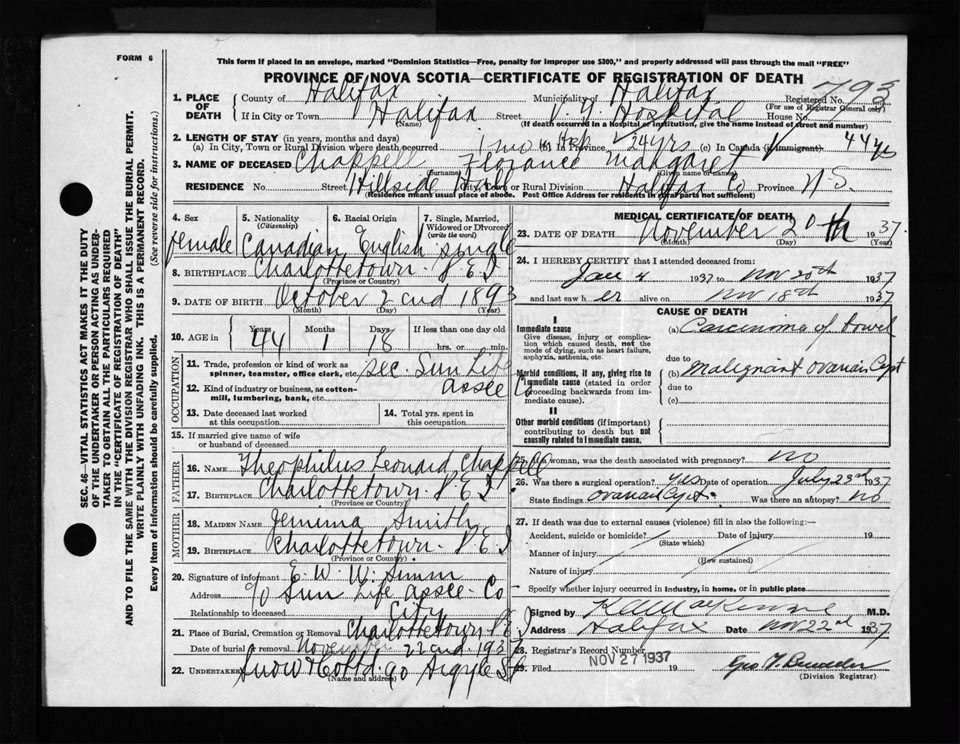 FORM 6
This form if placed in an envelope, marked "Dominion Statistics—Free, penalty for improper use $300," and properly addressed will pass through the mail "FREE"
PROVINCE OF NOVA SCOTIA—CERTIFICATE OF REGISTRATION OF DEATH
1. PLACE OF DEATH County of Halifax Municipality of Halifax Registered No. 793
(For use of Registrar General only)
If in City or Town Halifax Street V. G. Hospital House No.
(Name) (If death occurred in a Hospital or Institution, give the name instead of street and number)
2. LENGTH OF STAY (in years, months and days)
(a) In City, Town or Rural Division where death occurred 1 mo. Hosp (b) In Province 24 yrs (c) In Canada (if immigrant) 44 yrs
3. NAME OF DECEASED Chappell Florance Margaret
(Surname) (Given name or names)
RESIDENCE No. Street Hillside Hall City, Town or Rural Division Halifax Co Province N.S.
(Residence means usual place of abode. Post Office Address for residents in rural parts not sufficient)
4. Sex 5. Nationality 6. Racial Origin 7. Single, Married, Widowed or Divorced
(Citizenship) (write the word)
female Canadian English single
8. BIRTHPLACE Charlottetown. P.E.I
(Province or Country)
9. DATE OF BIRTH October 2nd 1893
(Month) (Day) (Year)
10. AGE in Years Months Days If less than one day old
44 1 18 hrs. or min.
OCCUPATION
11. Trade, profession or kind of work as spinner, teamster, office clerk, etc. sec. Sun Life
12. Kind of industry or business, as cotton-mill, lumbering, bank, etc. Assce Co
13. Date deceased last worked at this occupation 14. Total yrs. spent in this occupation
15. If married give name of wife or husband of deceased
FATHER
16. NAME Theophilus Leonard Chappell
17. BIRTHPLACE Charlottetown. P.E.I.
(Province or Country)
MOTHER
18. MAIDEN NAME Jemima Smith
19. BIRTHPLACE Charlottetown. P.E.I
(Province or Country)
20. Signature of informant E. W. W. Simm
Address c/o Sun Life Assce. Co
Relationship to deceased City
21. Place of Burial, Cremation or Removal Charlottetown P.E.I
Date of burial or removal November 22nd 1937
22. UNDERTAKER Snow & Co Ltd. 90 Argyle St
(Name and address)
MEDICAL CERTIFICATE OF DEATH
23. DATE OF DEATH November 20th 1937
(Month) (Day) (Year)
24. I HEREBY CERTIFY that I attended deceased from:
Jan 4 1937 to Nov 20th 1937
and last saw her alive on Nov 18th 1937
CAUSE OF DEATH
I
Immediate cause
Give disease, injury or complication which caused death, not the mode of dying, such as heart failure, asphyxia, asthenia, etc.
(a) Carcinoma of bowel
due to
Morbid conditions, if any, giving rise to immediate cause (stated in order proceeding backwards from immediate cause).
(b) Malignant ovarian cyst
due to
(c)
II
Other morbid conditions (if important) contributing to death but not causally related to immediate cause.
25. If a woman, was the death associated with pregnancy? no
26. Was there a surgical operation? yes Date of operation July 23rd 1937
State findings ovarian cyst. Was there an autopsy? no
27. If death was due to external causes (violence) fill in also the following:—
Accident, suicide or homicide? Date of injury 19
(State which)
Manner of injury
(How sustained)
Nature of injury
Specify whether injury occurred in industry, in home, or in public place
Signed by MacKenzie M.D.
Address Halifax Date Nov 22nd 1937.
28. Registrar's Record Number
29. Filed NOV 27 1937 19
(Division Registrar)
SEC. 46—VITAL STATISTICS ACT MAKES IT THE DUTY
OF THE UNDERTAKER OR PERSON ACTING AS UNDERTAKER TO OBTAIN ALL THE PARTICULARS REQUIRED
IN THE "CERTIFICATE OF REGISTRATION OF DEATH"
AND TO FILE THE SAME WITH THE DIVISION REGISTRAR WHO SHALL ISSUE THE BURIAL PERMIT.
WRITE PLAINLY WITH UNFADING INK. THIS IS A PERMANENT RECORD.
Every item of Information should be carefully supplied. (See reverse side for instructions.)